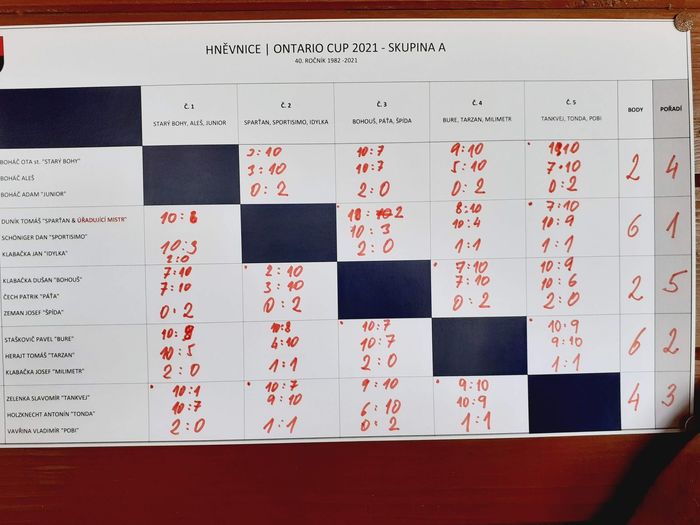 HNĚVNICE | ONTARIO CUP 2021 - SKUPINA A
40. ROČNÍK 1982 -2021
Č. 1 Č. 2 Č. 3 Č. 4 Č. 5 BODY POŘADÍ
STARÝ BOHY, ALEŠ, JUNIOR SPARŤAN, SPORTISIMO, IDYLKA BOHOUŠ, PÁŤA, ŠPÍDA BURE, TARZAN, MILIMETR TANKVEJ, TONDA, POBI
BOHÁČ OTA st. "STARÝ BOHY" :10 10:7 9:10 :10
BOHÁČ ALEŠ 3:10 10:7 5:10 7:10 2 4
BOHÁČ ADAM "JUNIOR" 0:2 2:0 0:2 0:2
DUNÍK TOMÁŠ "SPARŤAN & ÚŘADUJÍCÍ MISTR" 10: :2 8:10 7:10
SCHÖNIGER DAN "SPORTISIMO" 10:3 10:3 10:4 10:9 6 1
KLABAČKA JAN "IDYLKA" 2:0 2:0 1:1 1:1
KLABAČKA DUŠAN "BOHOUŠ" 7:10 2:10 7:10 10:9
ČECH PATRIK "PÁŤA" 7:10 3:10 7:10 10:6 2 5
ZEMAN JOSEF "ŠPÍDA" 0:2 0:2 0:2 2:0
STAŠKOVIČ PAVEL "BURE" 10: 10:8 10:7 10:9
HERAJT TOMÁŠ "TARZAN" 10:5 4:10 10:7 9:10 6 2
KLABAČKA JOSEF "MILIMETR" 2:0 1:1 2:0 1:1
ZELENKA SLAVOMÍR "TANKVEJ" 10:1 10:7 9:10 9:10
HOLZKNECHT ANTONÍN "TONDA" 10:7 9:10 6:10 10:9 4 3
VAVŘINA VLADIMÍR "POBI" 2:0 1:1 0:2 1:1